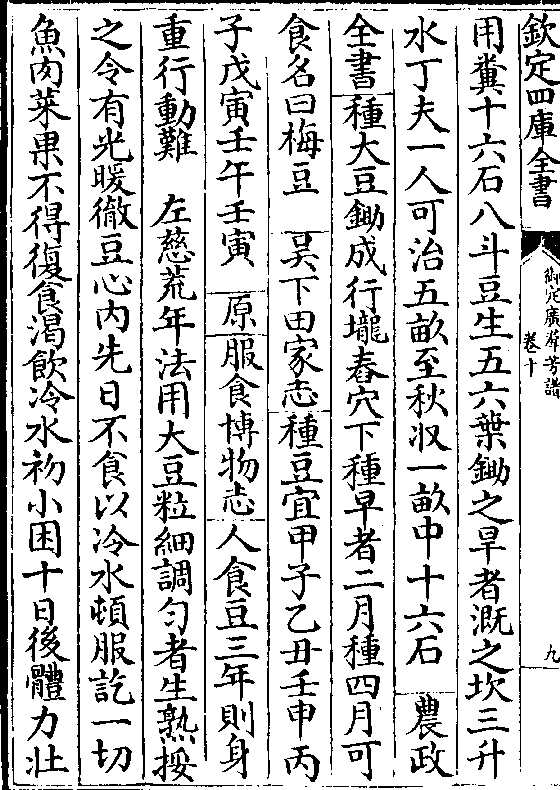 欽定四庫全書
御定廣群芳譜
卷十
九
用糞十六石八斗豆生五六葉鋤之旱者溉之坎三升
水丁夫一人可治五畝至秋収一畝中十六石 農政
全書種大豆鋤成行壠舂穴下種早者二月種四月可
食名曰梅豆 吴下田家志種豆宜甲子乙丑壬申丙
子戊寅壬午壬寅 原服食博物志人食豆三年則身
重行動難 左慈荒年法用大豆粒細調勻者生熟挼
之令有光暖徹豆心内先日不食以冷水頓服訖一切
魚肉菜果不得復食渴飲冷水初小困十日後體力壯